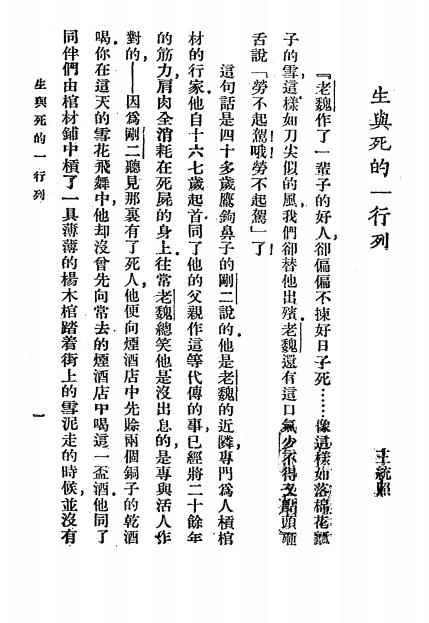 生與死的一行列
王統照
『老魏作了一輩子的好人,卻偏偏不揀好日子死……像這樣如落棉花瓢
子的雪,這樣如刀尖似的風,我們卻替他出殯!老魏還有這口氣,少不得又點頭砸
舌說「勞不起駕!哦!勞不起駕」了!
這句話是四十多歲鷹鉤鼻子的剛二說的.他是老魏的近隣,專門爲人槓棺
材的行家.他自十六七歲起首同了他的父親作這等代傳的事,已經將二十餘年
的筋力,肩肉全消耗在死屍的身上.往常老魏總笑他是沒出息的,是專與活人作
對的——因爲剛二聽見那裏有了死人,他便向煙酒店中先賒兩個銅子的乾酒
喝.你在這天的雪花飛舞中,他卻沒曾先向常去的煙酒店中喝這一盃酒.他同了
同伴們由棺材鋪中槓了一具薄薄的楊木棺踏着街上的雪泥走的時候,並沒有
生與死的一行列
一